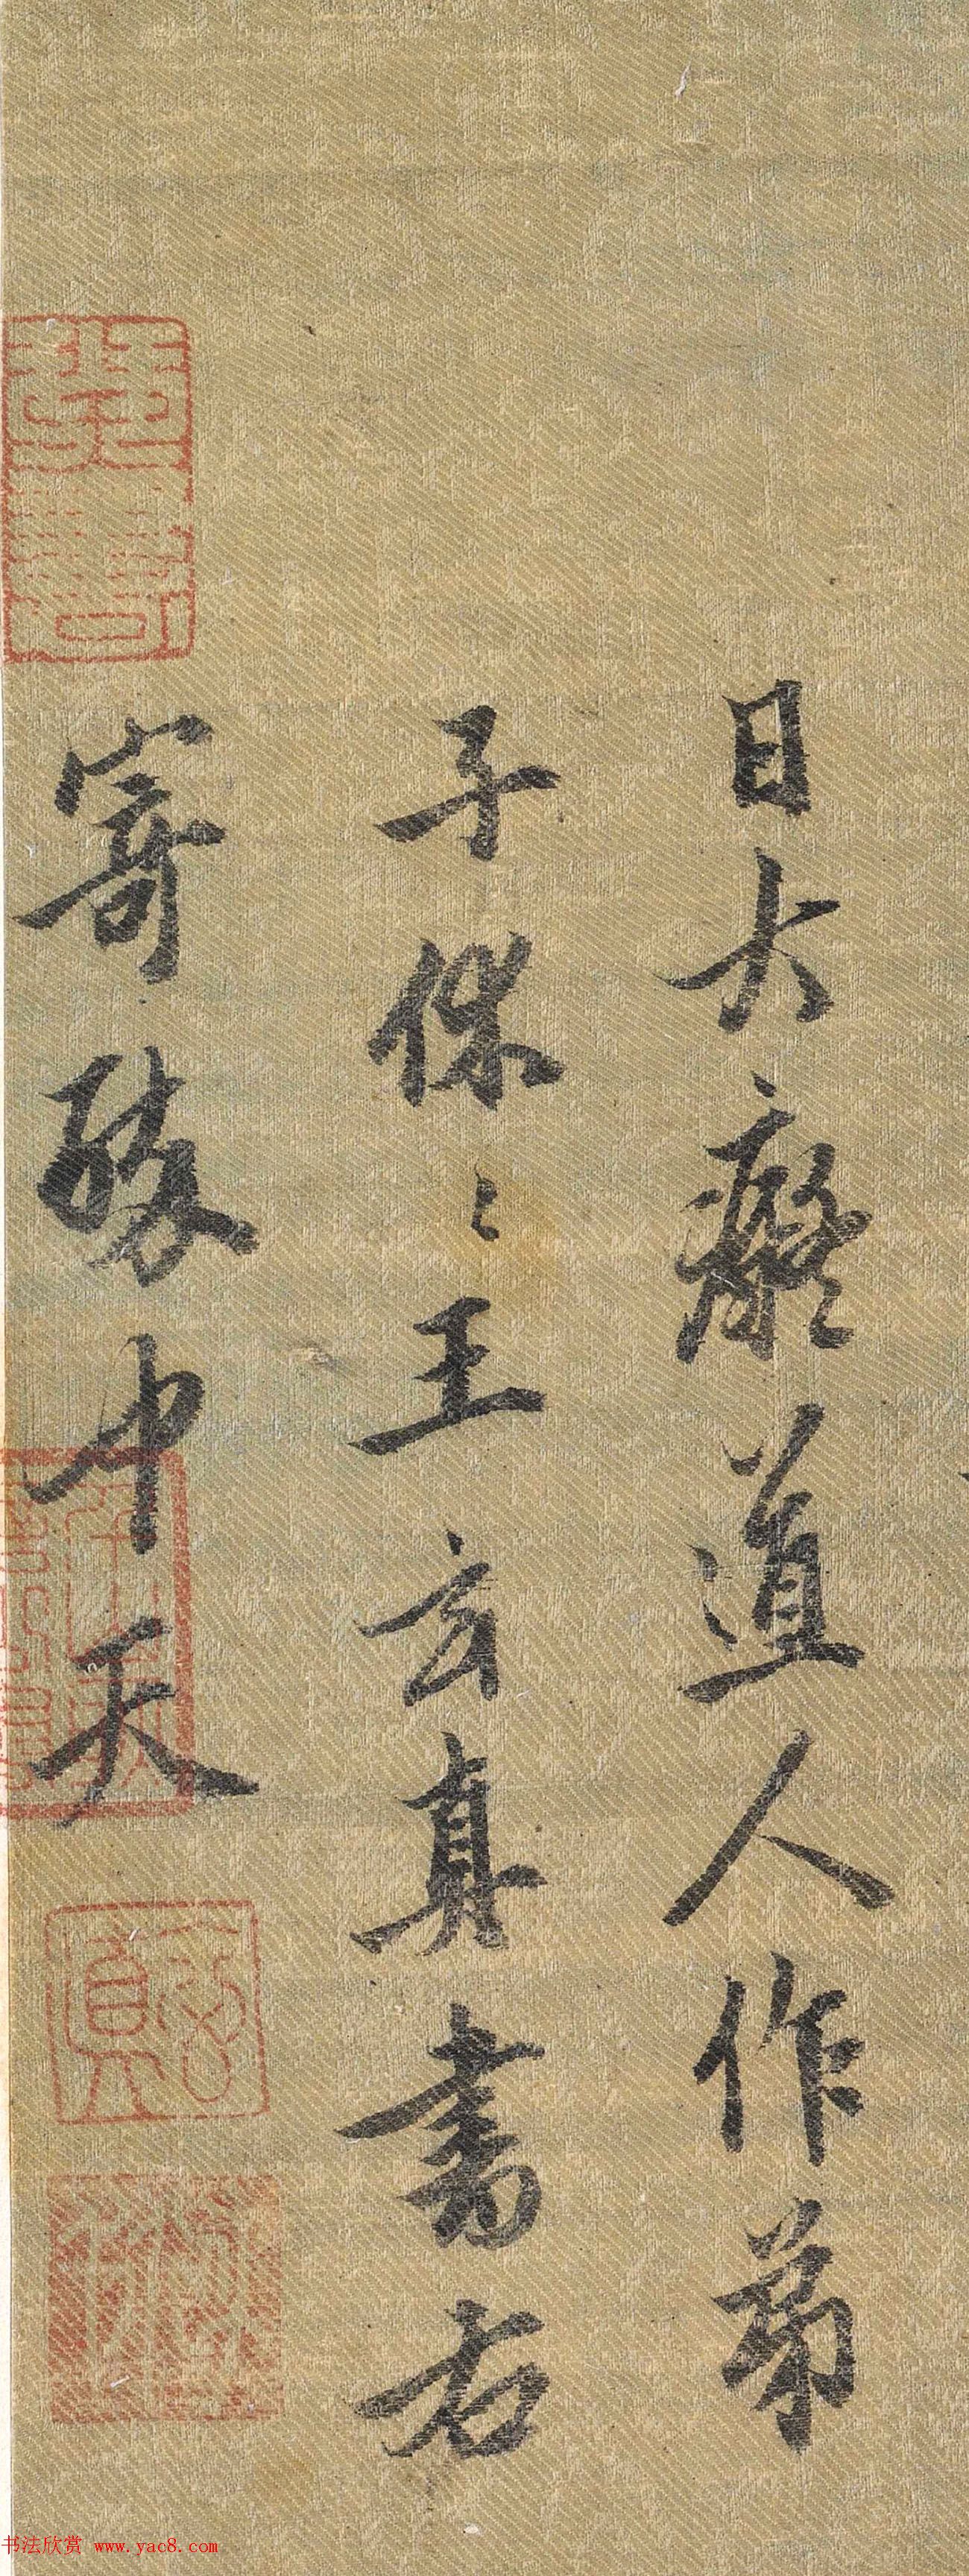 日大癡道人作弟
子休〻王玄真書右
寄醉中天
书法欣赏 www.yac8.com